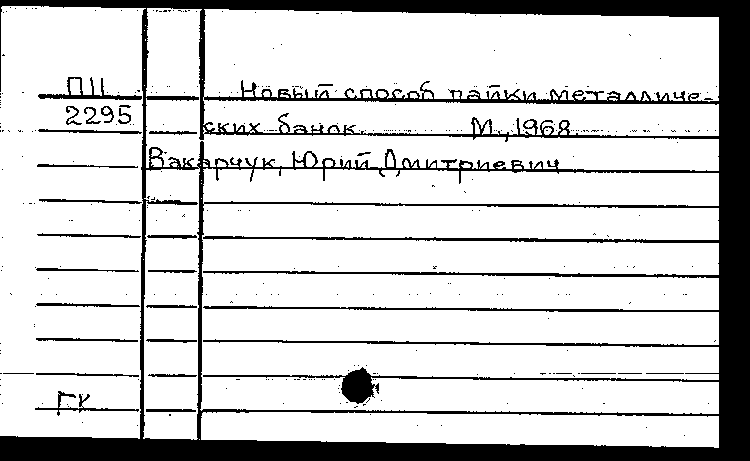 П11 Новый способ пайки металличе-
2295 ских банок. М., 1968.
Вакарчук, Юрий Дмитриевич
ГК